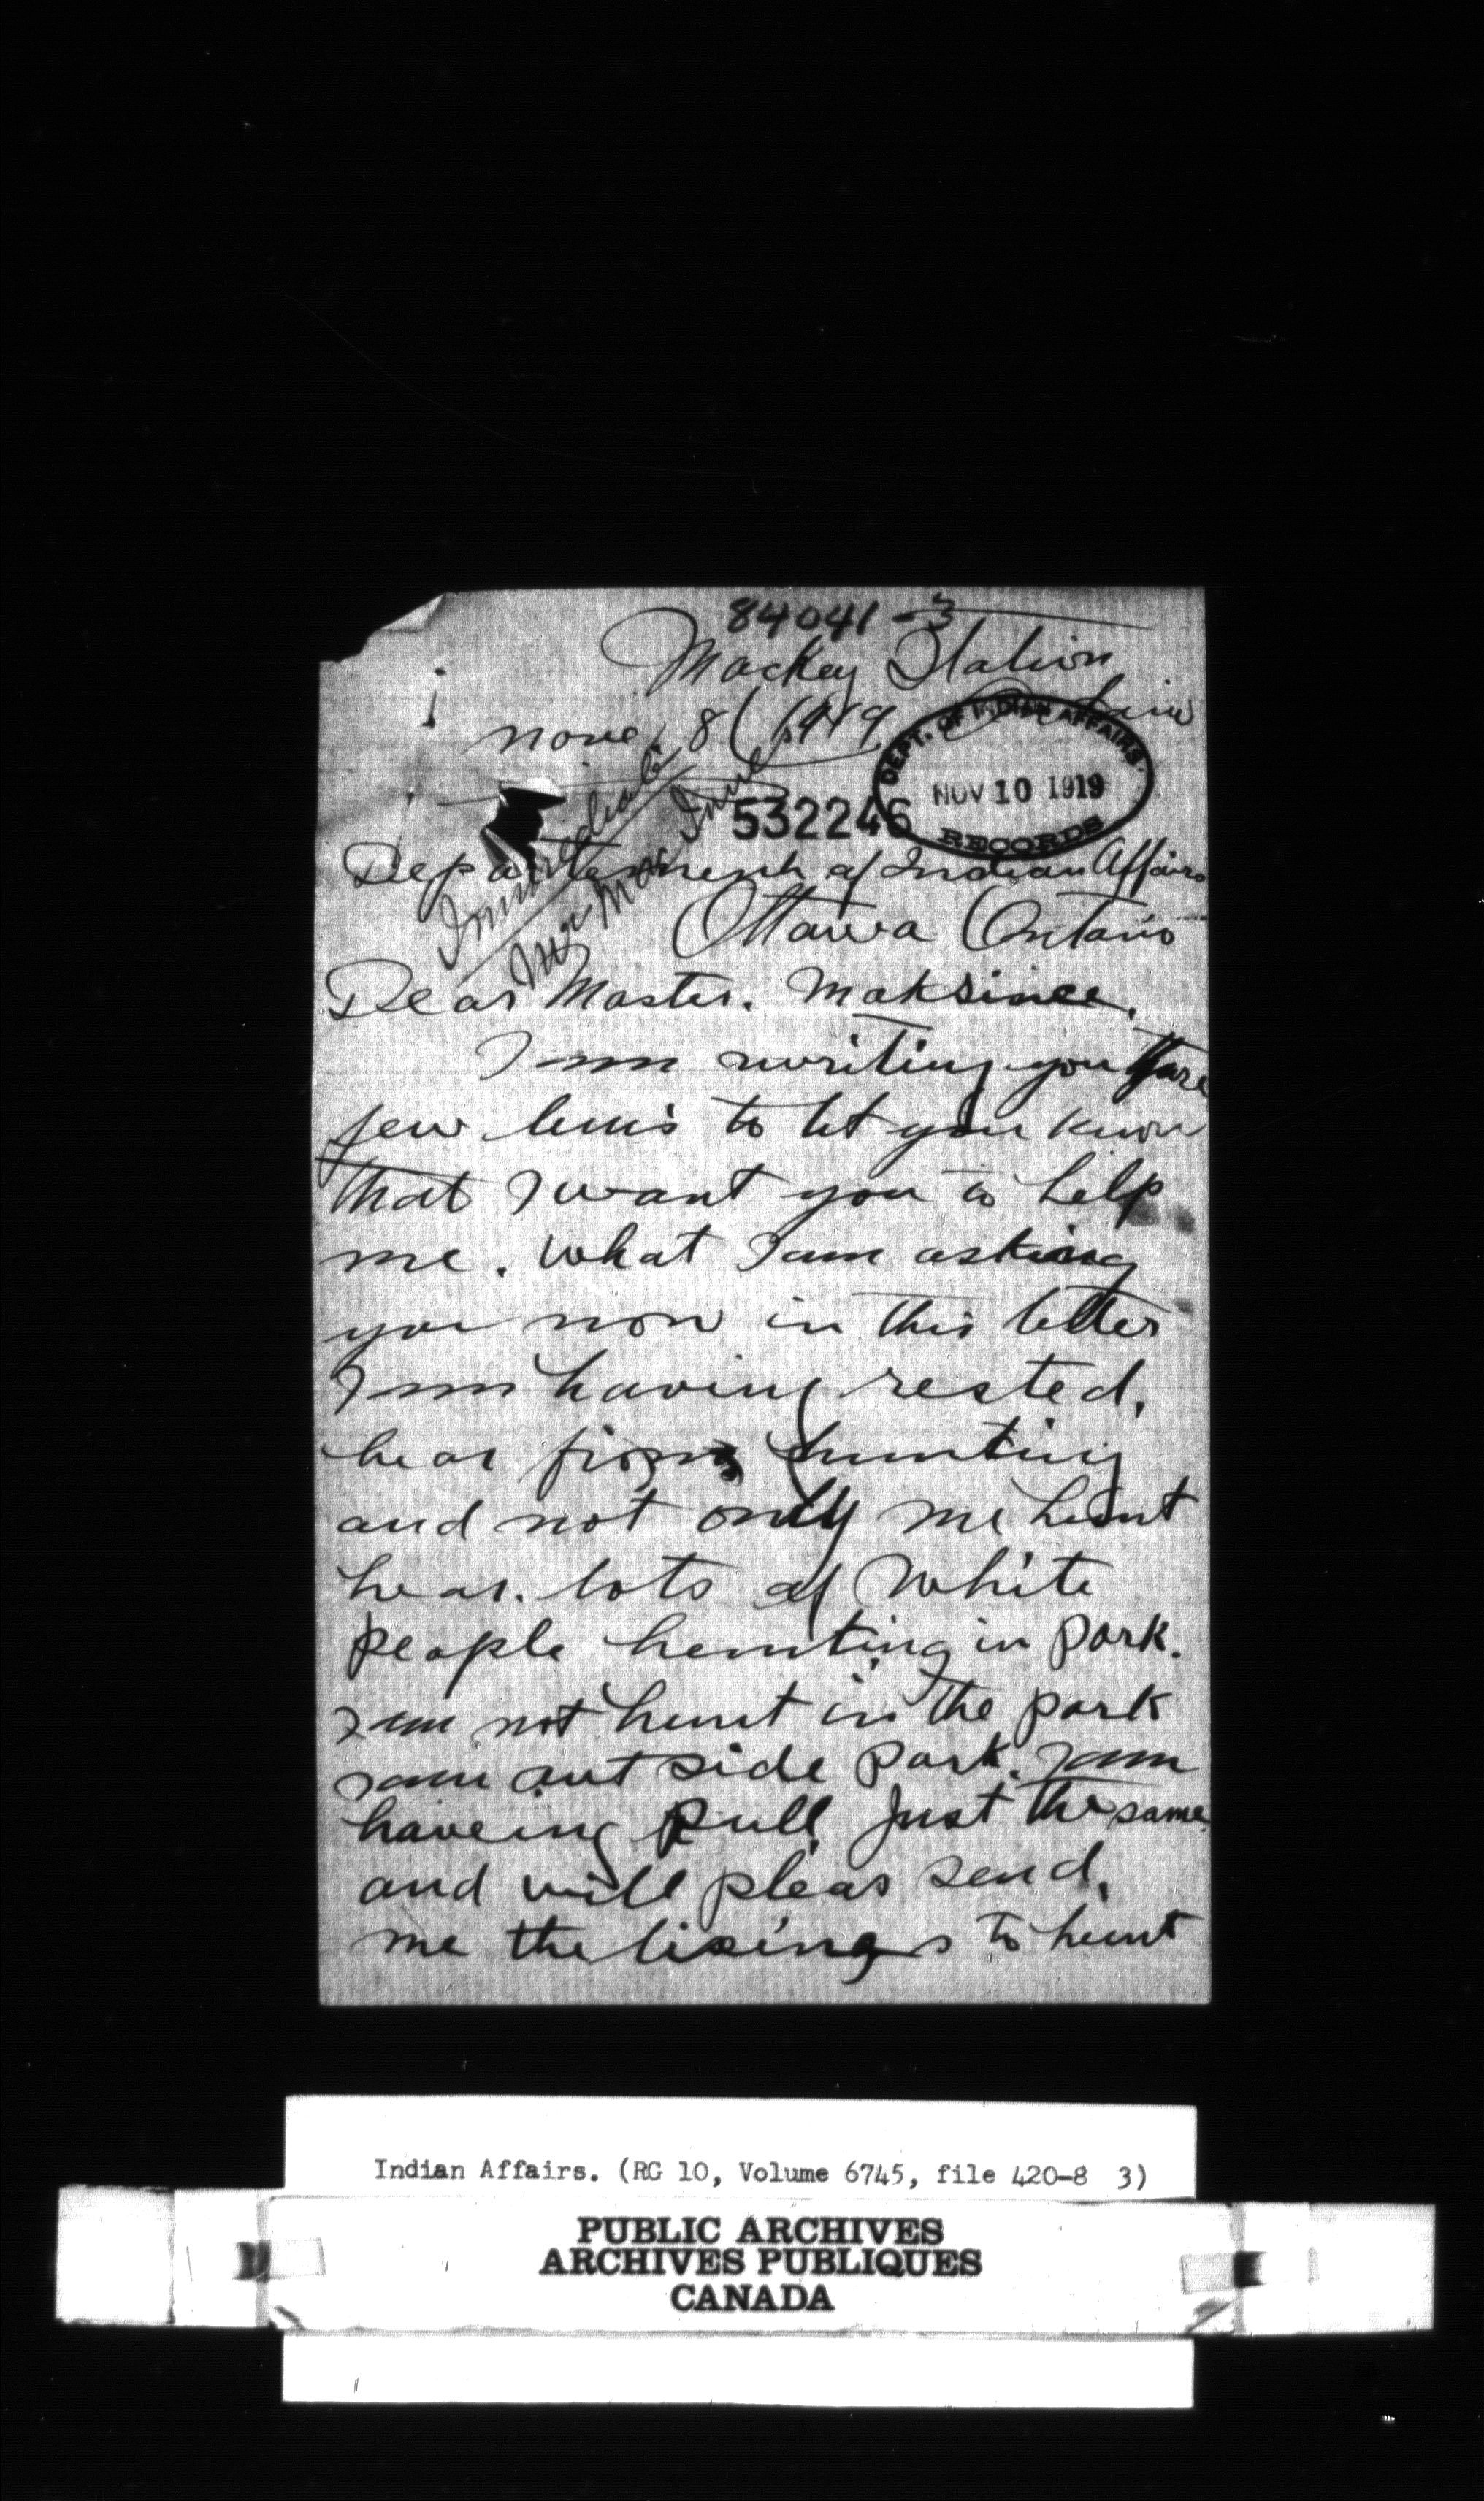 84041-3
Mackey Station
nove, 8 ( 1919
DEPT. OF INDIAN AFFAIRS
NOV 10 1919
RECORDS
532246
Immediate
Departement of Indian Affairs
Ottawa Ontario
Dear Master. Maksince,
I am writing you thare
few lines to let you know
that I want you to help
me. What I am asking
you now in this letter
I am having rested,
hear from hunting
and not only me hunt
hear. lots of White
people hunting in Park.
I am not hunt in the park
I am out side Park. I am
haveing pull Just the same.
and will pleas send,
me the lisings to hunt
Indian Affairs. (RG 10, Volume 6745, file 420-8 3)
PUBLIC ARCHIVES
ARCHIVES PUBLIQUES
CANADA